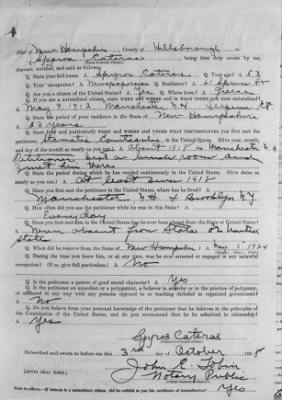 State of New Hampshire County of Hillsborough
Spyros Cateras being first duly sworn by me,
deposed, testified, and said as follows:
Q. State your full name. A. Spyros Cateras Q. Your age? A. 53
Q. Your occupation? A. Newspaperman Q. Residence? A. Spruce St
Q. Are you a citizen of the United States? A. Yes Q. Where born? A. Greece
Q. If you are a naturalized citizen, state when and where and in what court you were naturalized?
A. May 9, 1912 Manchester, N.H. Superior Ct
Q. State the period of your residence in the State of New Hampshire
A. 23 years
Q. State fully and particularly when and where and under what circumstances you first met the
petitioner, in the United States. (Give year, month,
and day of the month as nearly as you can.) A. About 1915 Manchester N.H.
Petitioner kept a lunch room and
I met him there
Q. State the period during which he has resided continuously in the United States. (Give dates as
nearly as you can.) A. At least since 1915
Q. Since you first met the petitioner in the United States, where has he lived?
A. Manchester N.H. & Brooklyn N.Y.
Q. How often did you see the petitioner while he was in this State?
A. Every day
Q. Since you first met him in the United States has he ever been absent from the State or United States?
A. Never absent from State or United
States
Q. When did he remove from the State of New Hampshire? 1924
Q. During the time you knew him, or at any time, was he ever arrested or engaged in any unlawful
occupation? (If so, give full particulars.) A. No
Q. Is the petitioner a person of good moral character? A. Yes
Q. Is the petitioner an anarchist or a polygamist, a believer in anarchy or in the practice of polygamy,
or affiliated in any way with any persons opposed to or teaching disbelief in organized government?
A. No
Q. Do you believe from your personal knowledge of the petitioner that he believes in the principles of
the Constitution of the United States, and do you recommend that he be admitted to citizenship?
A. Yes
Spyros Cateras
Subscribed and sworn to before me this 3rd day of October 1928
John E. Tobin
Notary Public
Note to officer: If witness is a naturalized citizen, did he exhibit to you his certificate of naturalization? Yes